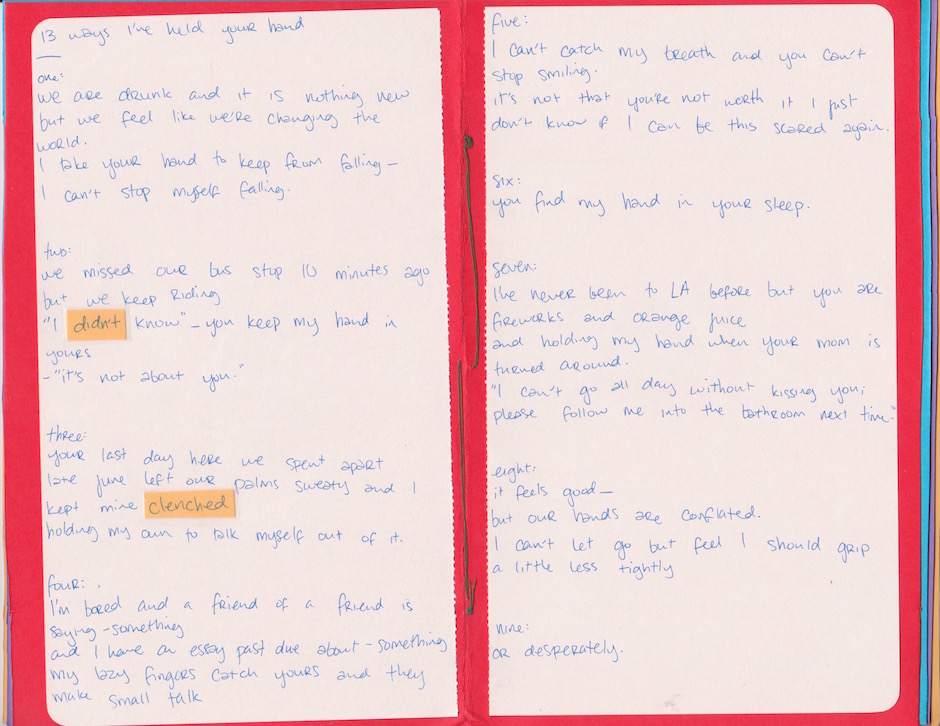 13 ways I've held your hand
one:
we are drunk and it is nothing new
but we feel like we're changing the
world.
I take your hand to keep from falling–
I can't stop myself falling.
two:
we missed our bus stop 10 minutes ago
but we keep riding
"I didn't know" – you keep my hand in
yours
– "it's not about you."
three:
your last day here we spent apart
late june left our palms sweaty and I
kept mine clenched
holding my own to talk myself out of it.
four:
I'm bored and a friend of a friend is
saying – something
and I have an essay past due about – something
my lazy fingers catch yours and they
make small talk
five:
I can't catch my breath and you can't
stop smiling.
it's not that you're not worth it I just
don't know if I can be this scared again.
six:
you find my hand in your sleep.
seven:
I've never been to LA before but you are
fireworks and orange juice
and holding my hand when your mom is
turned around.
"I can't go all day without kissing you;
please follow me into the bathroom next time."
eight:
it feels good –
but our hands are conflated.
I can't let go but feel I should grip
a little less tightly
nine:
or desperately.